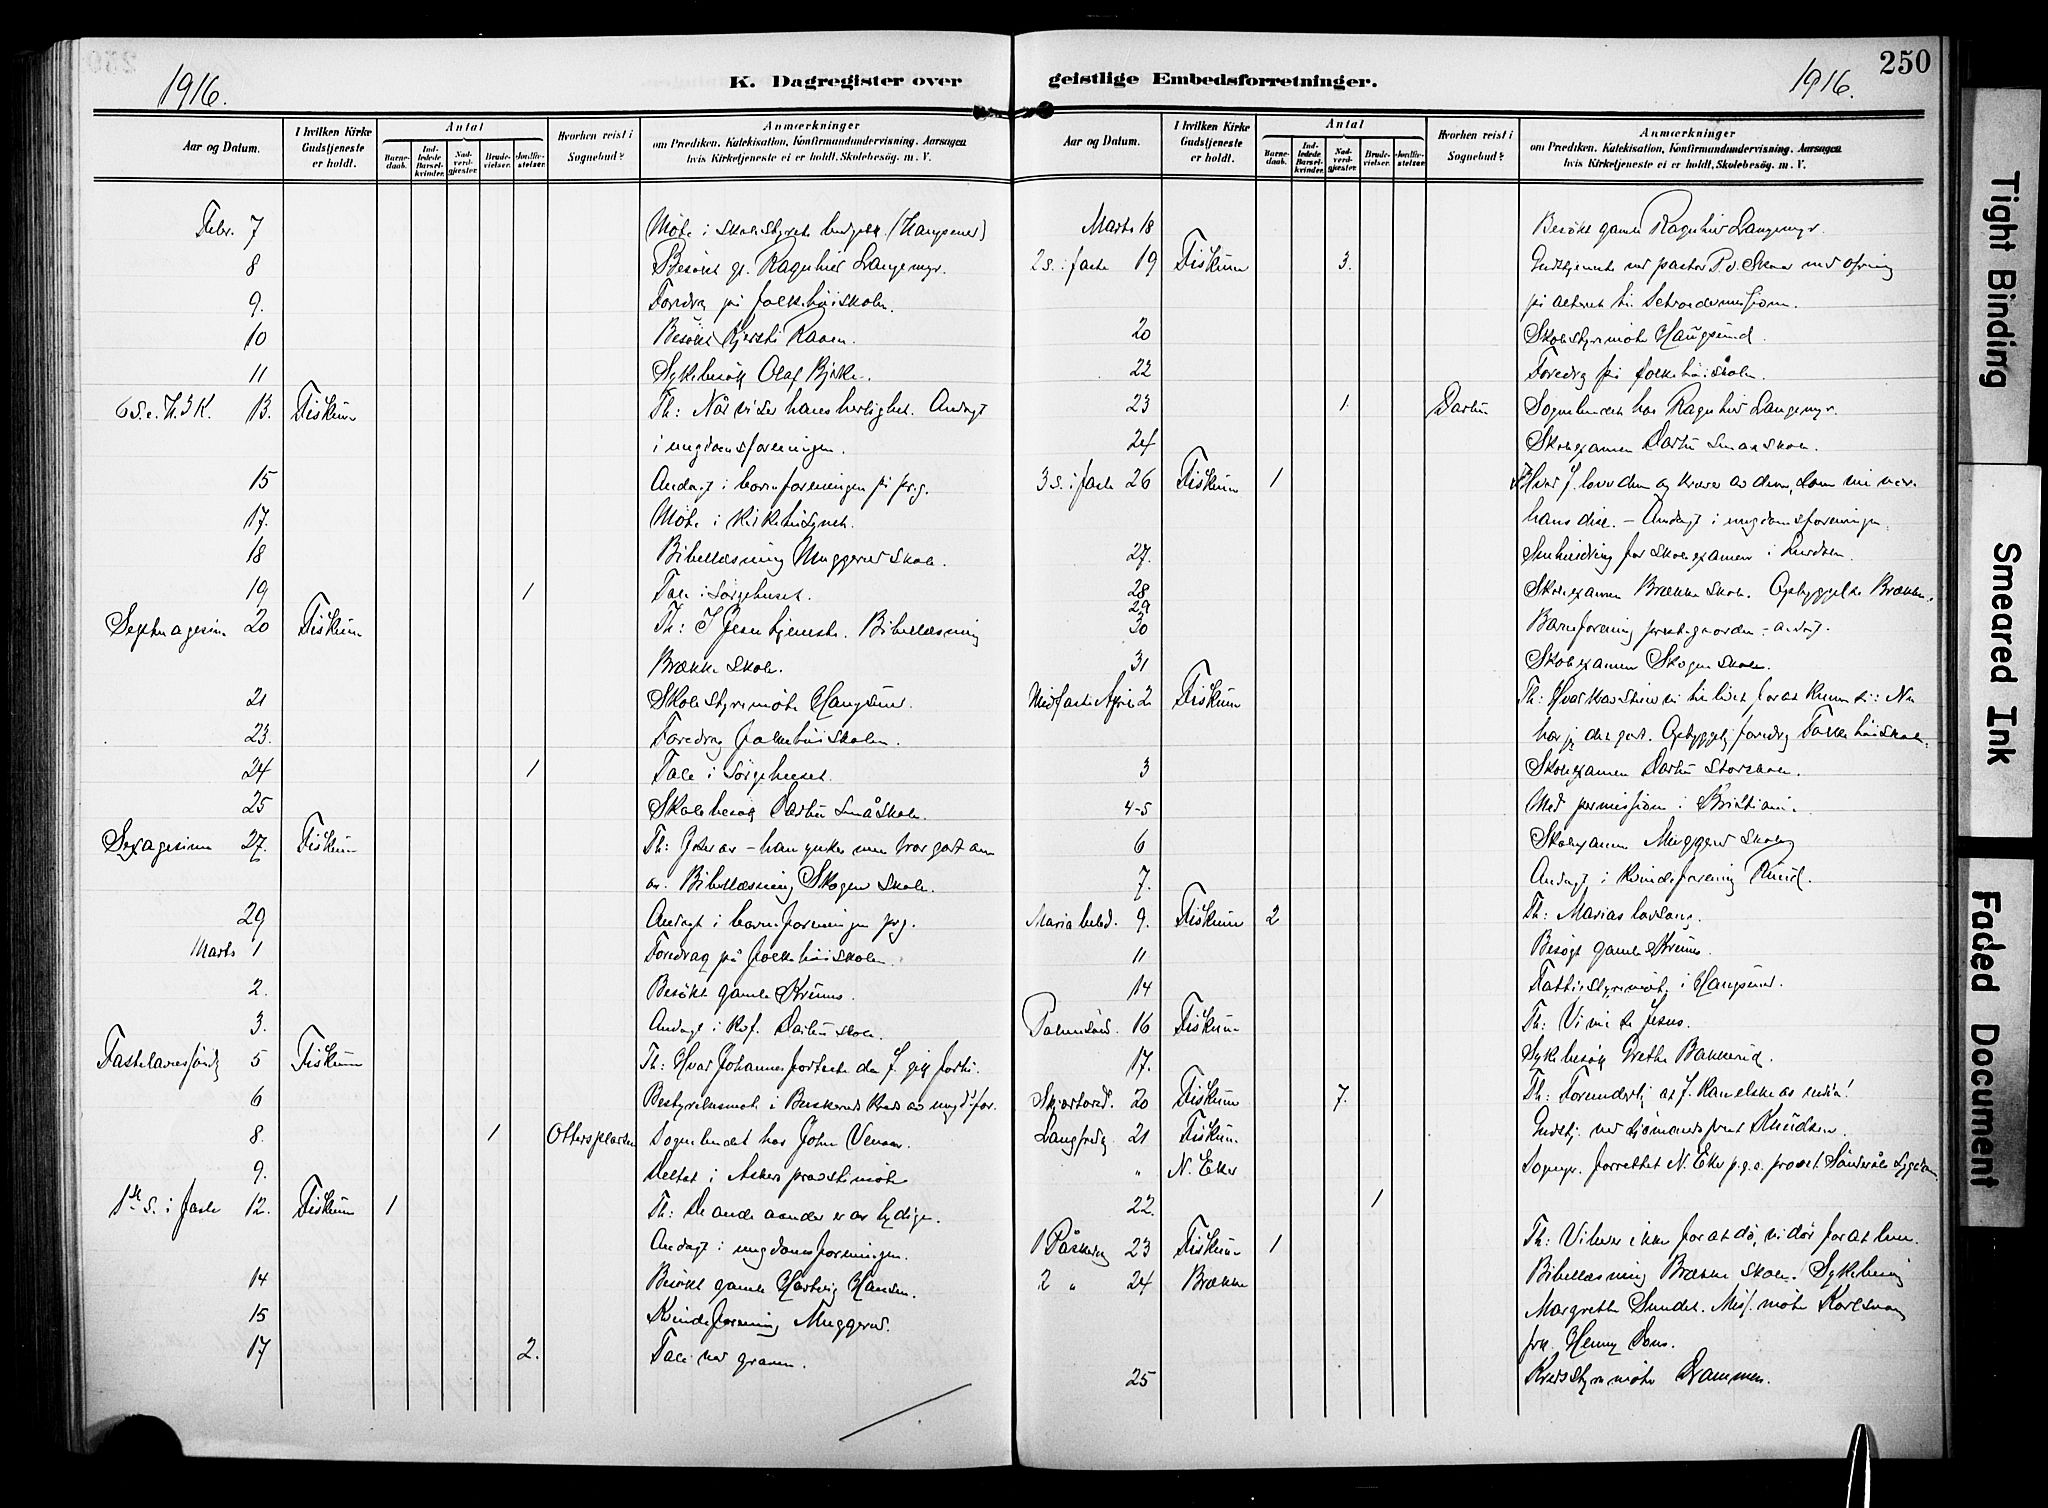 250
1916.
K. Dagregister over geistlige Embedsforretninger.
1916.
Aar og Datum.
I hvilken Kirke Gudstjeneste er holdt.
Antal
Barnedaab.
Indledede Barselkvinder.
Nadverdgjæster.
Brudevielser.
Jordfæstelser.
Hvorhen reist i Sognebud?
Anmærkninger
om Prædiken, Katekisation, Konfirmandundervisning, Aarsagen
hvis Kirketjeneste ei er holdt, Skolebesøg. m. V.
Febr. 7 Møte i skolestyret
8 Besøkt gl. Ragnhild Langemyr.
9. Foredrag på folkehøiskolen.
10 Besøkt Kjersti Raaen.
11 Sykebesøk Olaf Bjerke.
6 S. e. H. 3 K. 13. Fiskum Th: Når vi ser hans herlighet. Andagt
i ungdomsforeningen.
15 Andagt i barneforeningen på prg.
17. Møte i
18 Bibellæsning Muggerud skole.
19 1 Tale i sørgehuset.
Septuagesima 20 Fiskum Th: I Jesu tjeneste. Bibellæsning
Brække skole.
21 Skolestyremøte Haugsund.
23. Foredrag folkehøiskolen.
24 1 Tale i sørgehuset.
25 Skolebesøk Darbu småskole.
Sexagesima 27. Fiskum Th:
Bibellæsning Skogen skole.
29 Andagt i barneforeningen prg.
Marts 1 Foredrag på folkehøiskolen.
2. Besøkt gamle
3. Andagt i Kvf. Darbu skole.
Fastelavnssøndag 5 Fiskum Th: Hvad Johannes da J. gik forbi.
6 Bestyrelsesmøte i Buskerud Kreds av ungd.for.
8. 1 Ottersplassen Sognebudet hos John
9. Deltat i Askers provstimøte
1ste S. i faste 12. Fiskum 1 Th: De onde aander er ham lydige.
Andagt i ungdomsforeningen.
14 Besøkt gamle Hartvig Hansen.
15 Kvindeforening Muggerud.
17 2. Tale ved graven.
Aar og Datum.
I hvilken Kirke Gudstjeneste er holdt.
Antal
Barnedaab.
Indledede Barselkvinder.
Nadverdgjæster.
Brudevielser.
Jordfæstelser.
Hvorhen reist i Sognebud?
Anmærkninger
om Prædiken, Katekisation, Konfirmandundervisning, Aarsagen
hvis Kirketjeneste ei er holdt, Skolebesøg. m. V.
Marts 18 Besøkt gamle Ragnhild Langemyr.
2 s. i faste 19 Fiskum 3. Gudstjeneste ved pastor Skaar med ofring
på alteret til
20 Skolestyremøte Haugsund.
22 Foredrag på folkehøiskolen.
23 1 Darbu Sognebudet hos Ragnhild Langemyr.
24 Skoleexamen Darbu småskole.
3 s. i faste 26 Fiskum 1 Hvad J. lover dem og kræver av dem, som vil være
hans disc. - Andagt i ungdomsforeningen.
27. for skoleexamen i
28 Skoleexamen Brække skole. Opbyggelse Brække.
29
30 Barneforening prestegaarden - andagt.
31 Skoleexamen Skogen skole.
Midfaste April 2 Fiskum Th:
har jeg det godt. Opbyggelig foredrag Folkehøiskolen.
3 Skoleexamen Darbu storskole.
4-5 Med permission i Kristiania.
6 Skoleexamen Muggerud skole
7. Andagt i kvindeforening
Maria bebud. 9. Fiskum 2 Th: Marias lovsang.
11 Besøgt gamle
14 Fattigstyremøte i Haugsund.
Palmesønd. 16 Fiskum Th: Vi vil se Jesus.
17. Sykebesøk Grethe Bakkerud.
Skjærtorsd. 20 Fiskum 7. Th: Forunderlig at J. kan elske os endda!
Langfredag 21 Fiskum Gudstj. ved sjømandsprest Knudsen.
" N. Eker Sognepr. forrettet N. Eker p.g.a. provst sygdom.
22. 1
1 Påskedag 23 Fiskum 1 Th: Vi lever ikke for at dø, vi dør for at leve.
2 " 24 Brække Bibellæsning Brække skole. Sykebesøg
Margrethe Sundet. Mis. møte
frk. Henny Dons.
25 Kredsstyremøte Drammen.
Tight Binding
Smeared Ink
Faded Document